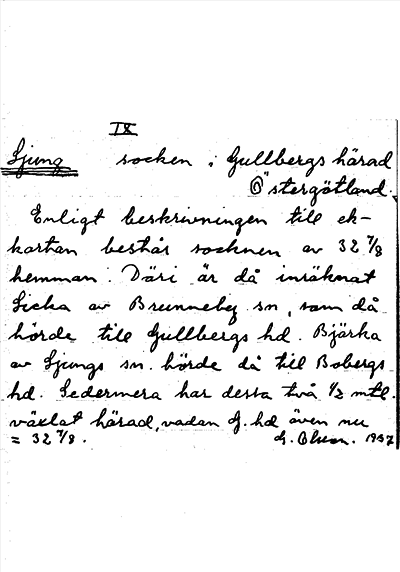 IX
Ljung socken i Gullbergs härad
Östergötland.
Enligt beskrivningen till ek-
kartan består socknen av 32 7/8
hemman. Däri är då inräknat
Sicka av Brunneby sn, som då
hörde till Gullbergs hd. Bjärka
av Ljungs sn. hörde då till Bobergs
hd. Sedermera har dessa två 1/2 mtl.
växlat härad, vadan G. hd även nu
= 32 7/8. G. Olson. 1937